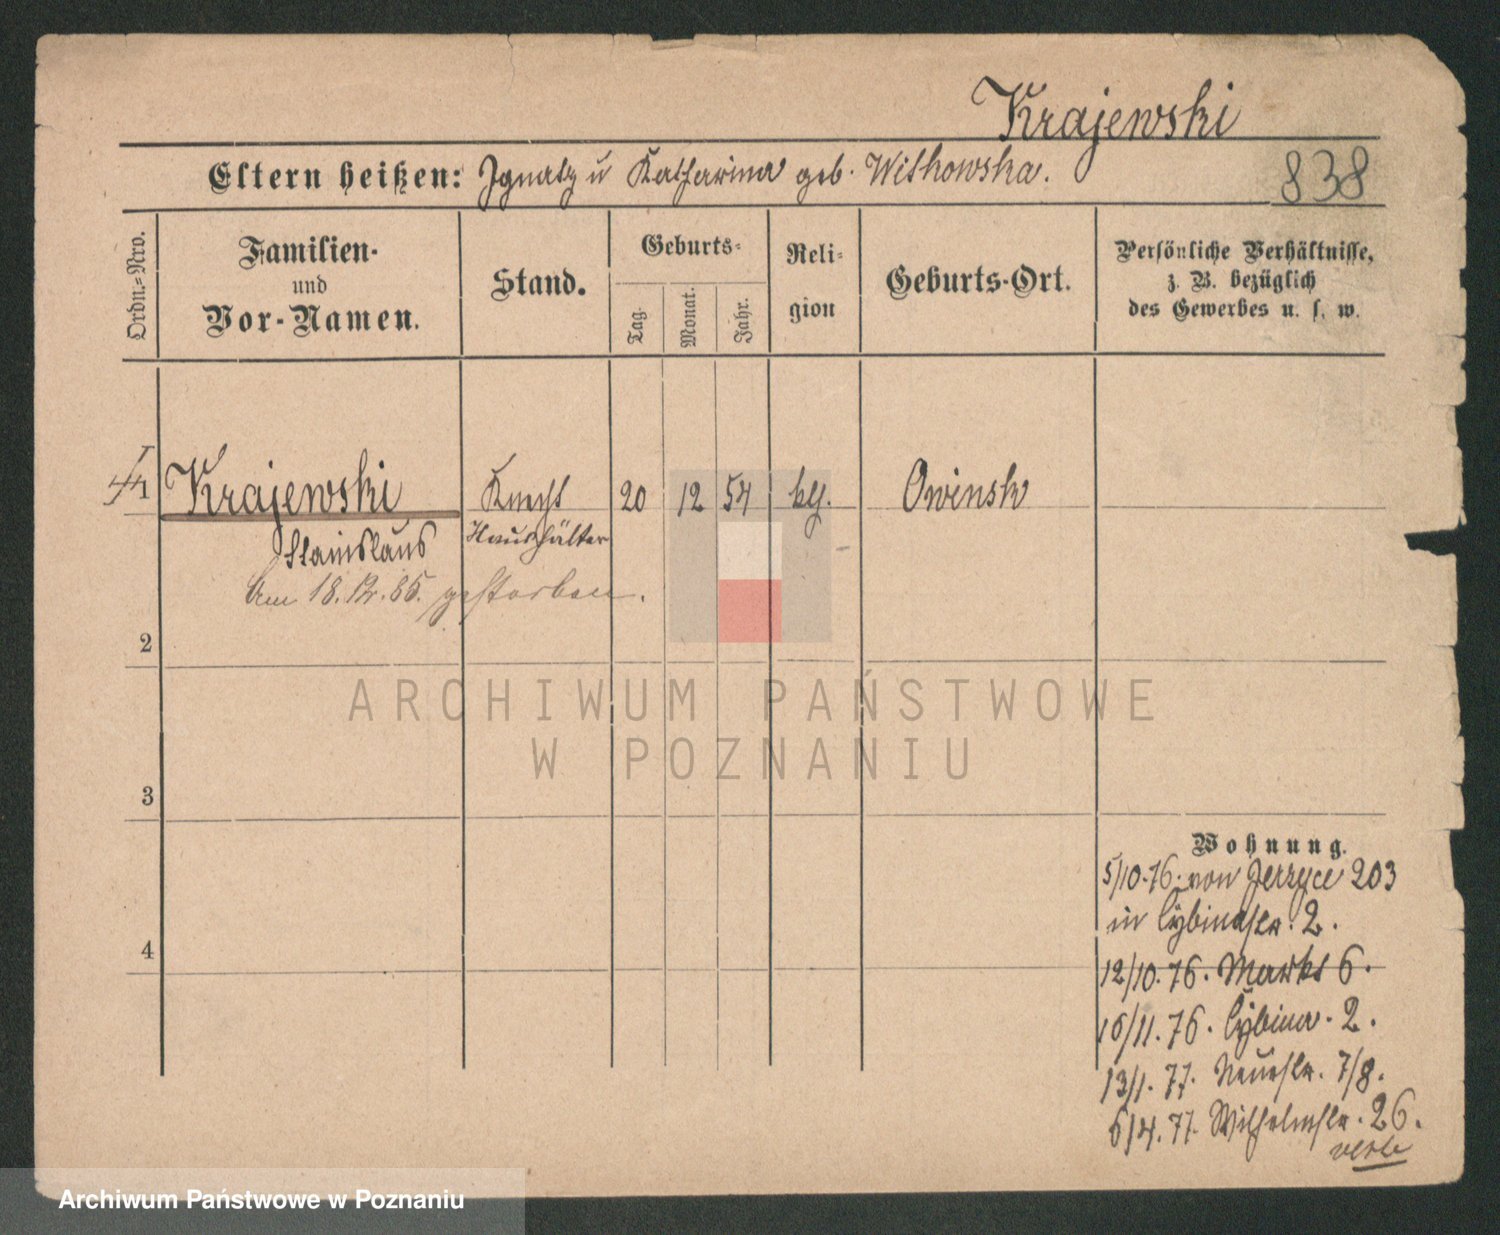 Krajewski
Eltern heißen: Ignatz u Katharina geb. Witkowska.
838
Ordn.=Nro.
Familien-
und
Vor-Namen.
Stand.
Geburts-
Tag.
Monat.
Jahr.
Reli-
gion
Geburts-Ort.
Persönliche Verhältnisse,
z. B. bezüglich
des Gewerbes u. s. w.
1
Krajewski
Knecht
20
12
54
klh.
Owinsk
Stanislaus
Haushälter
Am 18. 12. 85. gestorben.
2
ARCHIWUM PAŃSTWOWE
W POZNANIU
3
Wohnung.
5/10.76. von Jerzyce 203
in Cybinastr. 2.
4
12/10.76. Markt 6.
16/11.76. Cybina. 2.
13/1.77. Neuestr. 7/8.
6/4.77. Wilhelmstr. 26.
verte
Archiwum Państwowe w Poznaniu